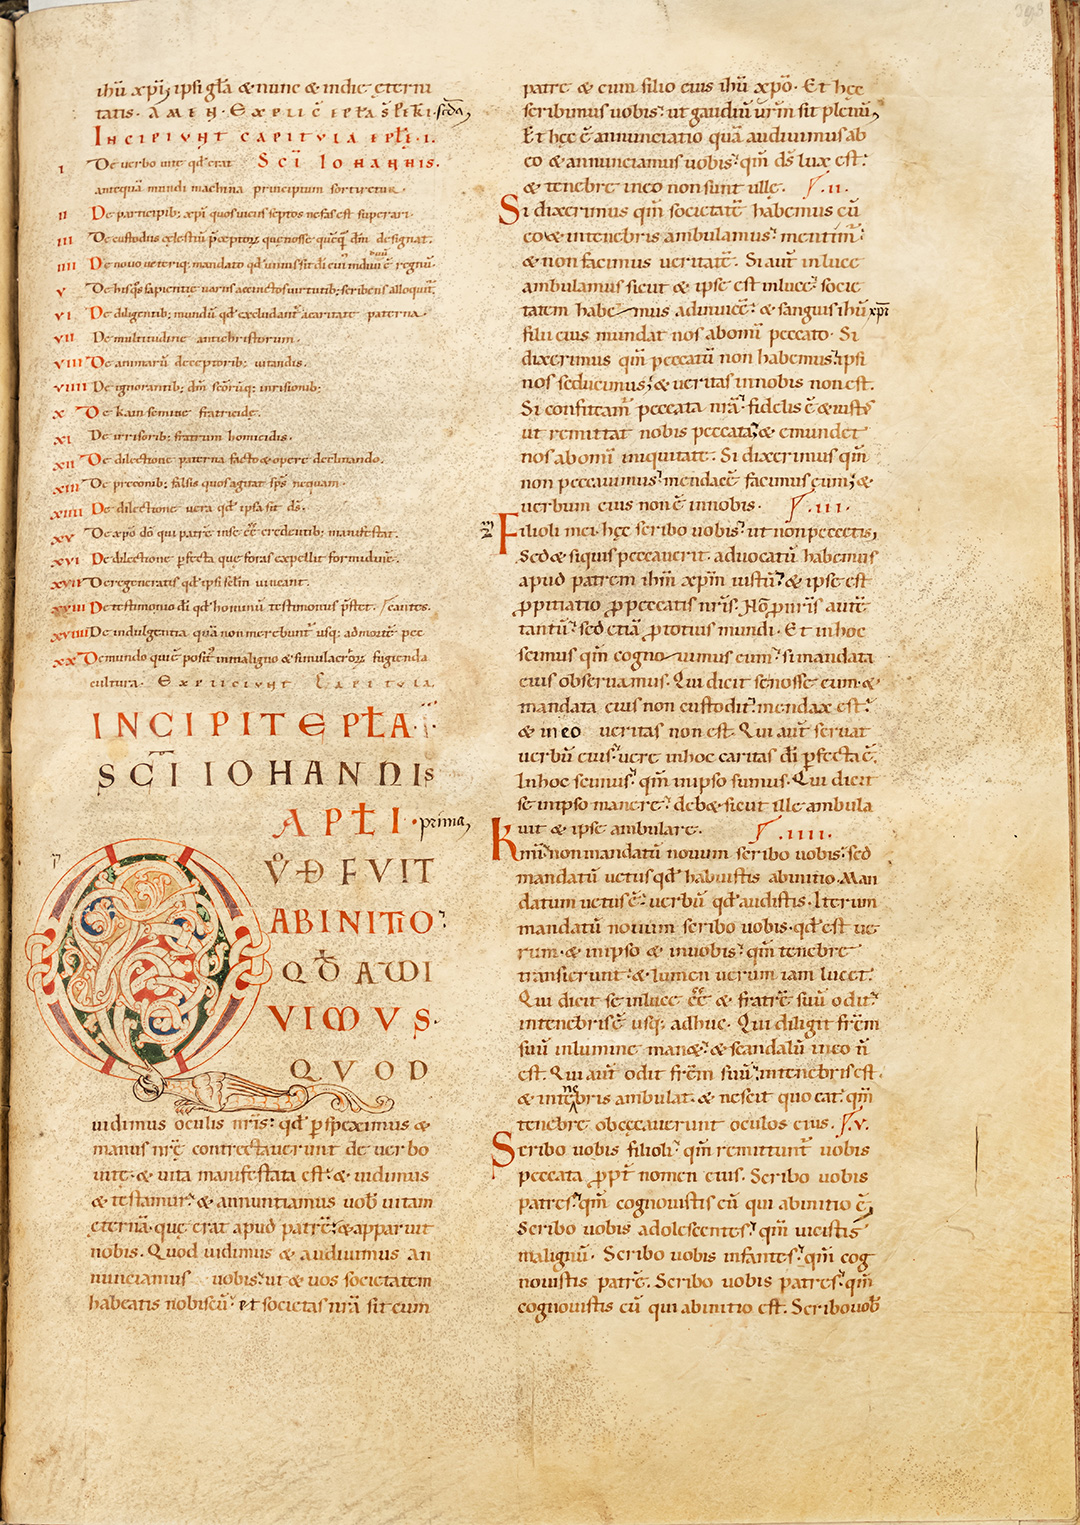 393
ihū xp̄i, ipsi gl̄a & nunc & in die ęterni
tatis. AMEN. Explic̄ ep̄la s̄ petri. scđa,
INCIPIUNT CAPITULA EPL̄I. I.
I De verbo uitę qđ erat SC̄I IOHANNIS.
antequā mundi machina principium sortiretur.
II De participib; xp̄i quos uicus septos nefas est superari.
III De custodiis cęlestiū p̄ceptoꝝ que nosse quēq; dm̄ designat.
IIII De nouo ueteriq; mandato qđ
V De hisq̄ sapientię uariis accinctos uirtutib; scribens alloquit̄.
VI De diligentib; mundū qđ excludant̄ a caritate paterna.
VII De multitudine antichristorum.
VIII De animarū deceptorib; uitandis.
VIIII De ignorantib; dm̄ sc̄orūq; inrisionib;
X De kain semine fratricide.
XI De irrisorib; fratrum homicidis.
XII De dilectione paterna facto & opere declinando.
XIII De preconib; falsis quos agitat sps̄ nequam.
XIIII De dilectione uera qđ ipsa sit ds̄.
XV De xp̄o dō qui patrē in se ēē credentib; manifestat.
XVI De dilectione p̄fecta que foras expellit formidinē.
XVII De regeneratis qđ ipsi solim uiueant.
XVIII De testimonio dī qđ hominū testimoniis p̄stet. / cantes.
XVIIII De indulgentia quā non merebunt̄ usq; ad mortē pec
XX De mundo qui ē posit; in maligno & simulacroꝝ fugienda
cultura. EXPLICIUNT CAPITULA.
INCIPIT EPL̄A. I.
SC̄I IOHANNIS
APL̄I. prima,
QUOD FUIT
AB INITIO:
QĐ AUDI
VIMUS.
QUOD
uidimus oculis nr̄is: qđ p̄speximus &
manus nr̄ę contrectauerunt de uerbo
uitę. & uita manifestata est: & uidimus
& testamur: & annuntiamus uob̄ uitam
ęternā. que erat apud patrē: & apparuit
nobis. Quod uidimus & audiuimus an
nunciamus uobis: ut & uos societatem
habeatis nobiscū: et societas nr̄a sit cum
patre & cum filio eius ihū xp̄o. Et hęc
scribimus uobis: ut gaudiū ur̄m sit plenū,
Et hęc ē annunciatio quā audiuimus ab
eo & annunciamus uobis: qm̄ ds̄ lux est:
& tenebre in eo non sunt ullę. II.
Si dixerimus qm̄ societatē habemus cū
eo & in tenebris ambulamus: mentim̄:
& non facimus ueritatē. Si aut̄ in luce
ambulamus sicut & ipse est in luce: socie
tatem habemus adinuicē: & sanguis ihū xp̄i
filii eius mundat nos ab omī peccato. Si
dixerimus qm̄ peccatū non habemus: ipsi
nos seducimus; & ueritas in nobis non est.
Si confiteam̄ peccata nr̄a: fidelis ē & iust;
ut remittat nobis peccata; & emundet
nos ab omī iniquitate. Si dixerimus qm̄
non peccauimus: mendacē facimus eum; &
uerbum eius non ē in nobis. III.
Filioli mei. hęc scribo uobis: ut non peccetis,
Sed & siquis peccauerit. aduocatū habemus
apud patrem ihm̄ xp̄m iustū: & ipse est
p̄pitiatio p̄ peccatis nr̄is. Nō p̄ nr̄is autē
tantū: sed etiā p̄ totius mundi. Et in hoc
scimus qm̄ cognouimus eum: si mandata
eius obseruamus. Qui dicit se nosse eum. &
mandata eius non custodit: mendax est:
& in eo ueritas non est. Qui aut̄ seruat
uerbū eius: uere in hoc caritas dī p̄fecta ē.
In hoc scimus: qm̄ in ipso sumus. Qui dicit
se in ipso manere: deb& sicut ille ambula
uit & ipse ambulare. IIII.
Kmī: non mandatū nouum scribo uobis: sed
mandatū uetus qđ habuistis ab initio. Man
datum uetus ē: uerbū qđ audistis. Iterum
mandatū nouum scribo uobis. qđ est ue
rum. & in ipso & in uobis: qm̄ tenebrę
transierunt: & lumen uerum iam lucet:
Qui dicit se in luce ēē & fratrē suū odit:
in tenebris ē usq; adhuc. Qui diligit fr̄em
suū in lumine man&: & scandalū in eo n̄
est. Qui aut̄ odit fr̄em suū: in tenebris est.
& in tenebris ambulat. & nescit quo eat. qm̄
tenebrę obcęcauerunt oculos eius. V.
Scribo uobis filioli: qm̄ remittunt̄ uobis
peccata p̄pt̄ nomen eius. Scribo uobis
patres: qm̄ cognouistis eū qui ab initio ē,
Scribo uobis adolescentes: qm̄ uicistis
malignū. Scribo uobis infantes: qm̄ cog
nouistis patrē. Scribo uobis patres: qm̄
cognouistis eū qui ab initio est. Scribo uob̄